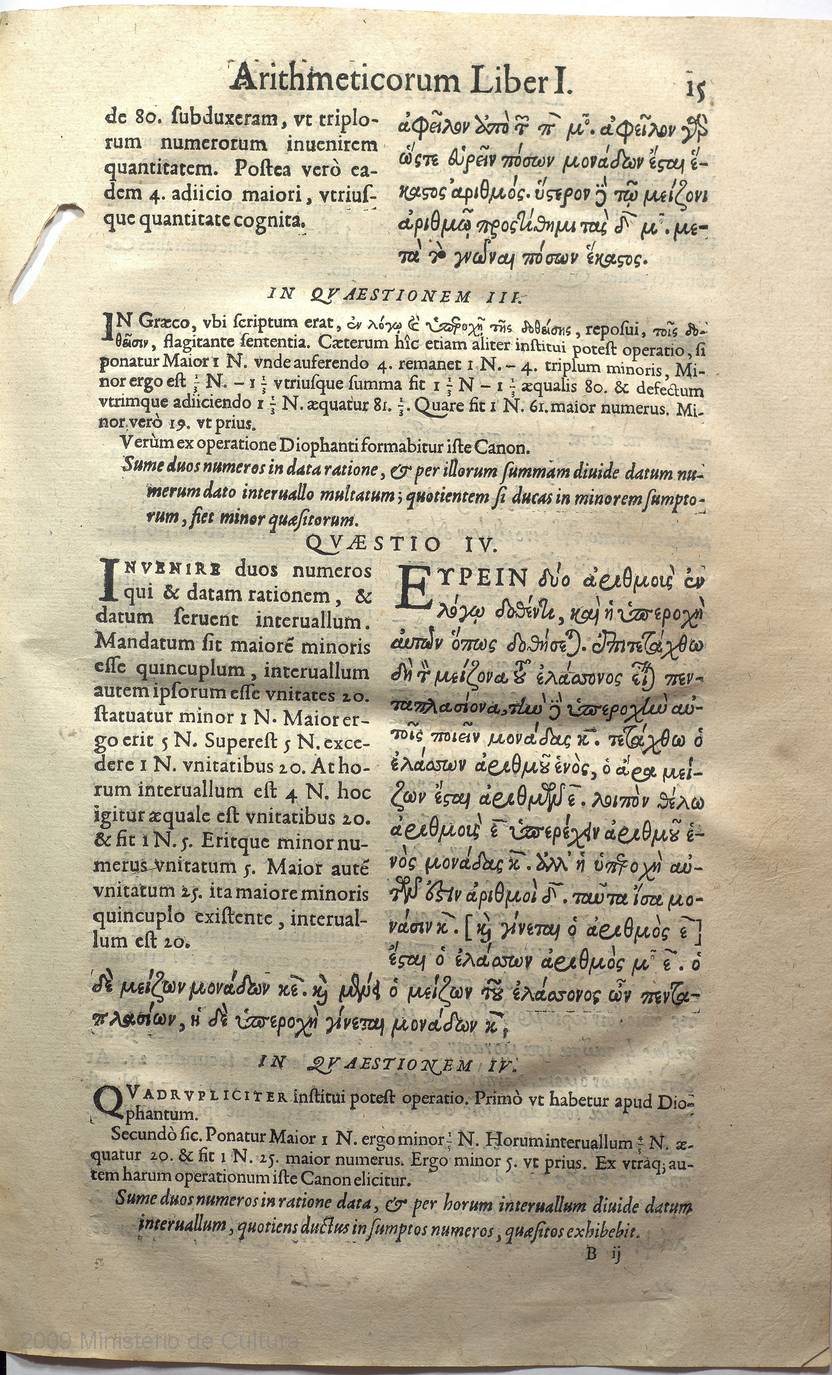 Arithmeticorum Liber I.
15
de 80. ſubduxeram, vt triplo-
rum numerorum inuenirem
quantitatem. Poſtea verò ea-
dem 4. adiicio maiori, vtriuſ-
que quantitate cognita.
ἀφεῖλον ἀπὸ τῶν π̄ μ̊. ἀφεῖλον γὸ
ὥστε εὑρεῖν πόσων μονάδων ἔσται ἕ-
καστος ἀριθμός. ὕστερον δὲ τῷ μείζονι
ἀριθμῷ προστίθημι τὰς δ̄ μ̊. με-
τὰ τὸ γνῶναι πόσων ἕκαστος.
IN QVAESTIONEM III.
IN Græco, vbi ſcriptum erat, ἐν λόγῳ ἐκ ὑπεροχῇ τῆς δοθείσης, repoſui, τοῖς δο-
θεῖσιν, flagitante ſententia. Cæterum hîc etiam aliter inſtitui poteſt operatio, ſi
ponatur Maior 1 N. vnde auferendo 4. remanet 1 N. – 4. triplum minoris, Mi-
nor ergo eſt 1/3 N. – 1 1/3 vtriuſque ſumma fit 1 1/3 N – 1 1/3 æqualis 80. & defectum
vtrimque adiiciendo 1 1/3 N. æquatur 81. 1/3. Quare fit 1 N. 61. maior numerus. Mi-
nor verò 19. vt prius.
Verùm ex operatione Diophanti formabitur iſte Canon.
Sume duos numeros in data ratione, & per illorum ſummam diuide datum nu-
merum dato interuallo multatum; quotientem ſi ducas in minorem ſumpto-
rum, fiet minor quæſitorum.
QVÆSTIO IV.
INVENIRE duos numeros
qui & datam rationem, &
datum ſeruent interuallum.
Mandatum ſit maiorē minoris
eſſe quincuplum, interuallum
autem ipſorum eſſe vnitates 20.
ſtatuatur minor 1 N. Maior er-
go erit 5 N. Supereſt 5 N. exce-
dere 1 N. vnitatibus 20. At ho-
rum interuallum eſt 4 N. hoc
igitur æquale eſt vnitatibus 20.
& fit 1 N. 5. Eritque minor nu-
merus vnitatum 5. Maior autē
vnitatum 25. ita maiore minoris
quincuplo exiſtente, interual-
lum eſt 20.
ΕΥΡΕΙΝ δύο ἀριθμοὺς ἐν
λόγῳ δοθέντι, καὶ ἡ ὑπεροχὴ
αὐτῶν ὅπως δοθήσεται. ἐπιτετάχθω
δὴ τὸν μείζονα τοῦ ἐλάσσονος εἶναι πεν-
ταπλασίονα, τὴν δὲ ὑπεροχὴν αὐ-
τοῖς ποιεῖν μονάδας κ̄. τετάχθω ὁ
ἐλάσσων ἀριθμοῦ ἑνὸς, ὁ ἄρα μεί-
ζων ἔσται ἀριθμῶν ε̄. λοιπὸν θέλω
ἀριθμοὺς ε̄ ὑπερέχειν ἀριθμοῦ ἑ-
νὸς μονάδας κ̄. ἀλλ' ἡ ὑπεροχὴ αὐ-
τῶν ἐστὶν ἀριθμοὶ δ̄. ταῦτα ἴσα μο-
νάσιν κ̄. [καὶ γίνεται ὁ ἀριθμὸς ε̄]
ἔσται ὁ ἐλάσσων ἀριθμὸς μ̊ ε̄. ὁ
δὲ μείζων μονάδων κε̄. καὶ μένει ὁ μείζων τοῦ ἐλάσσονος ὢν πεντα-
πλασίων, ἡ δὲ ὑπεροχὴ γίνεται μονάδων κ̄.
IN QVAESTIONEM IV.
QVADRVPLICITER inſtitui poteſt operatio. Primò vt habetur apud Dio-
phantum.
Secundò ſic. Ponatur Maior 1 N. ergo minor 1/5 N. Horum interuallum 4/5 N. æ-
quatur 20. & fit 1 N. 25. maior numerus. Ergo minor 5. vt prius. Ex vtraq; au-
tem harum operationum iſte Canon elicitur.
Sume duos numeros in ratione data, & per horum interuallum diuide datum
interuallum, quotiens ductus in ſumptos numeros, quæſitos exhibebit.
B ij
2009 Ministerio de Cultura